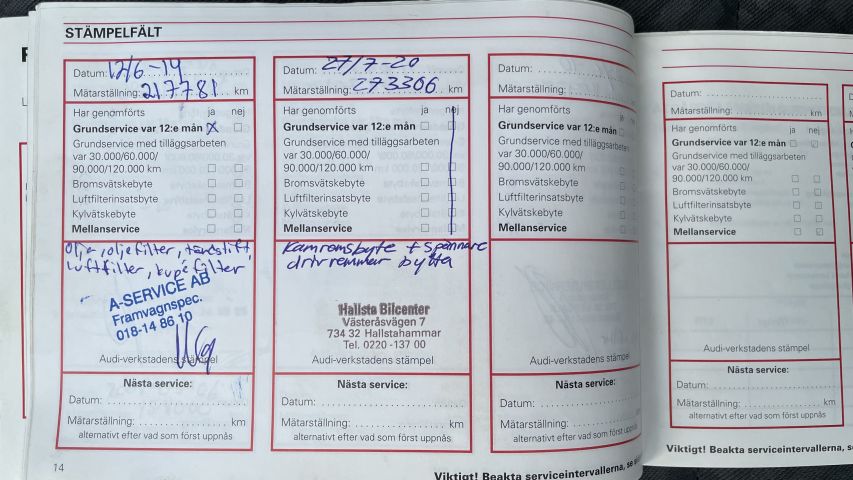 STÄMPELFÄLT
Datum: 12/6-14
Mätarställning: 217781 km
Har genomförts ja nej
Grundservice var 12:e mån X
Grundservice med tilläggsarbeten
var 30.000/60.000/
90.000/120.000 km
Bromsvätskebyte
Luftfilterinsatsbyte
Kylvätskebyte
Mellanservice
olja, oljefilter, tändstift,
luftfilter, kupéfilter
A-SERVICE AB
Framvagnspec.
018-14 86 10
Audi-verkstadens stämpel
Nästa service:
Datum:
Mätarställning: km
alternativt efter vad som först uppnås
14
Datum: 27/7-20
Mätarställning: 273306 km
Har genomförts ja nej
Grundservice var 12:e mån
Grundservice med tilläggsarbeten
var 30.000/60.000/
90.000/120.000 km
Bromsvätskebyte
Luftfilterinsatsbyte
Kylvätskebyte
Mellanservice
Kamremsbyte + spännare
drivremmar bytta
Hallsta Bilcenter
Västeråsvägen 7
734 32 Hallstahammar
Tel. 0220-137 00
Audi-verkstadens stämpel
Nästa service:
Datum:
Mätarställning: km
alternativt efter vad som först uppnås
Datum:
Mätarställning: km
Har genomförts ja nej
Grundservice var 12:e mån
Grundservice med tilläggsarbeten
var 30.000/60.000/
90.000/120.000 km
Bromsvätskebyte
Luftfilterinsatsbyte
Kylvätskebyte
Mellanservice
Audi-verkstadens stämpel
Nästa service:
Datum:
Mätarställning: km
alternativt efter vad som först uppnås
Viktigt! Beakta serviceintervallerna, se
Datum:
Mätarställning: km
Har genomförts ja nej
Grundservice var 12:e mån
Grundservice med tilläggsarbeten
var 30.000/60.000/
90.000/120.000 km
Bromsvätskebyte
Luftfilterinsatsbyte
Kylvätskebyte
Mellanservice
Audi-verkstadens stämpel
Nästa service:
Datum:
Mätarställning: km
alternativt efter vad som först uppnås
Viktigt! Beakta serviceintervallerna, s